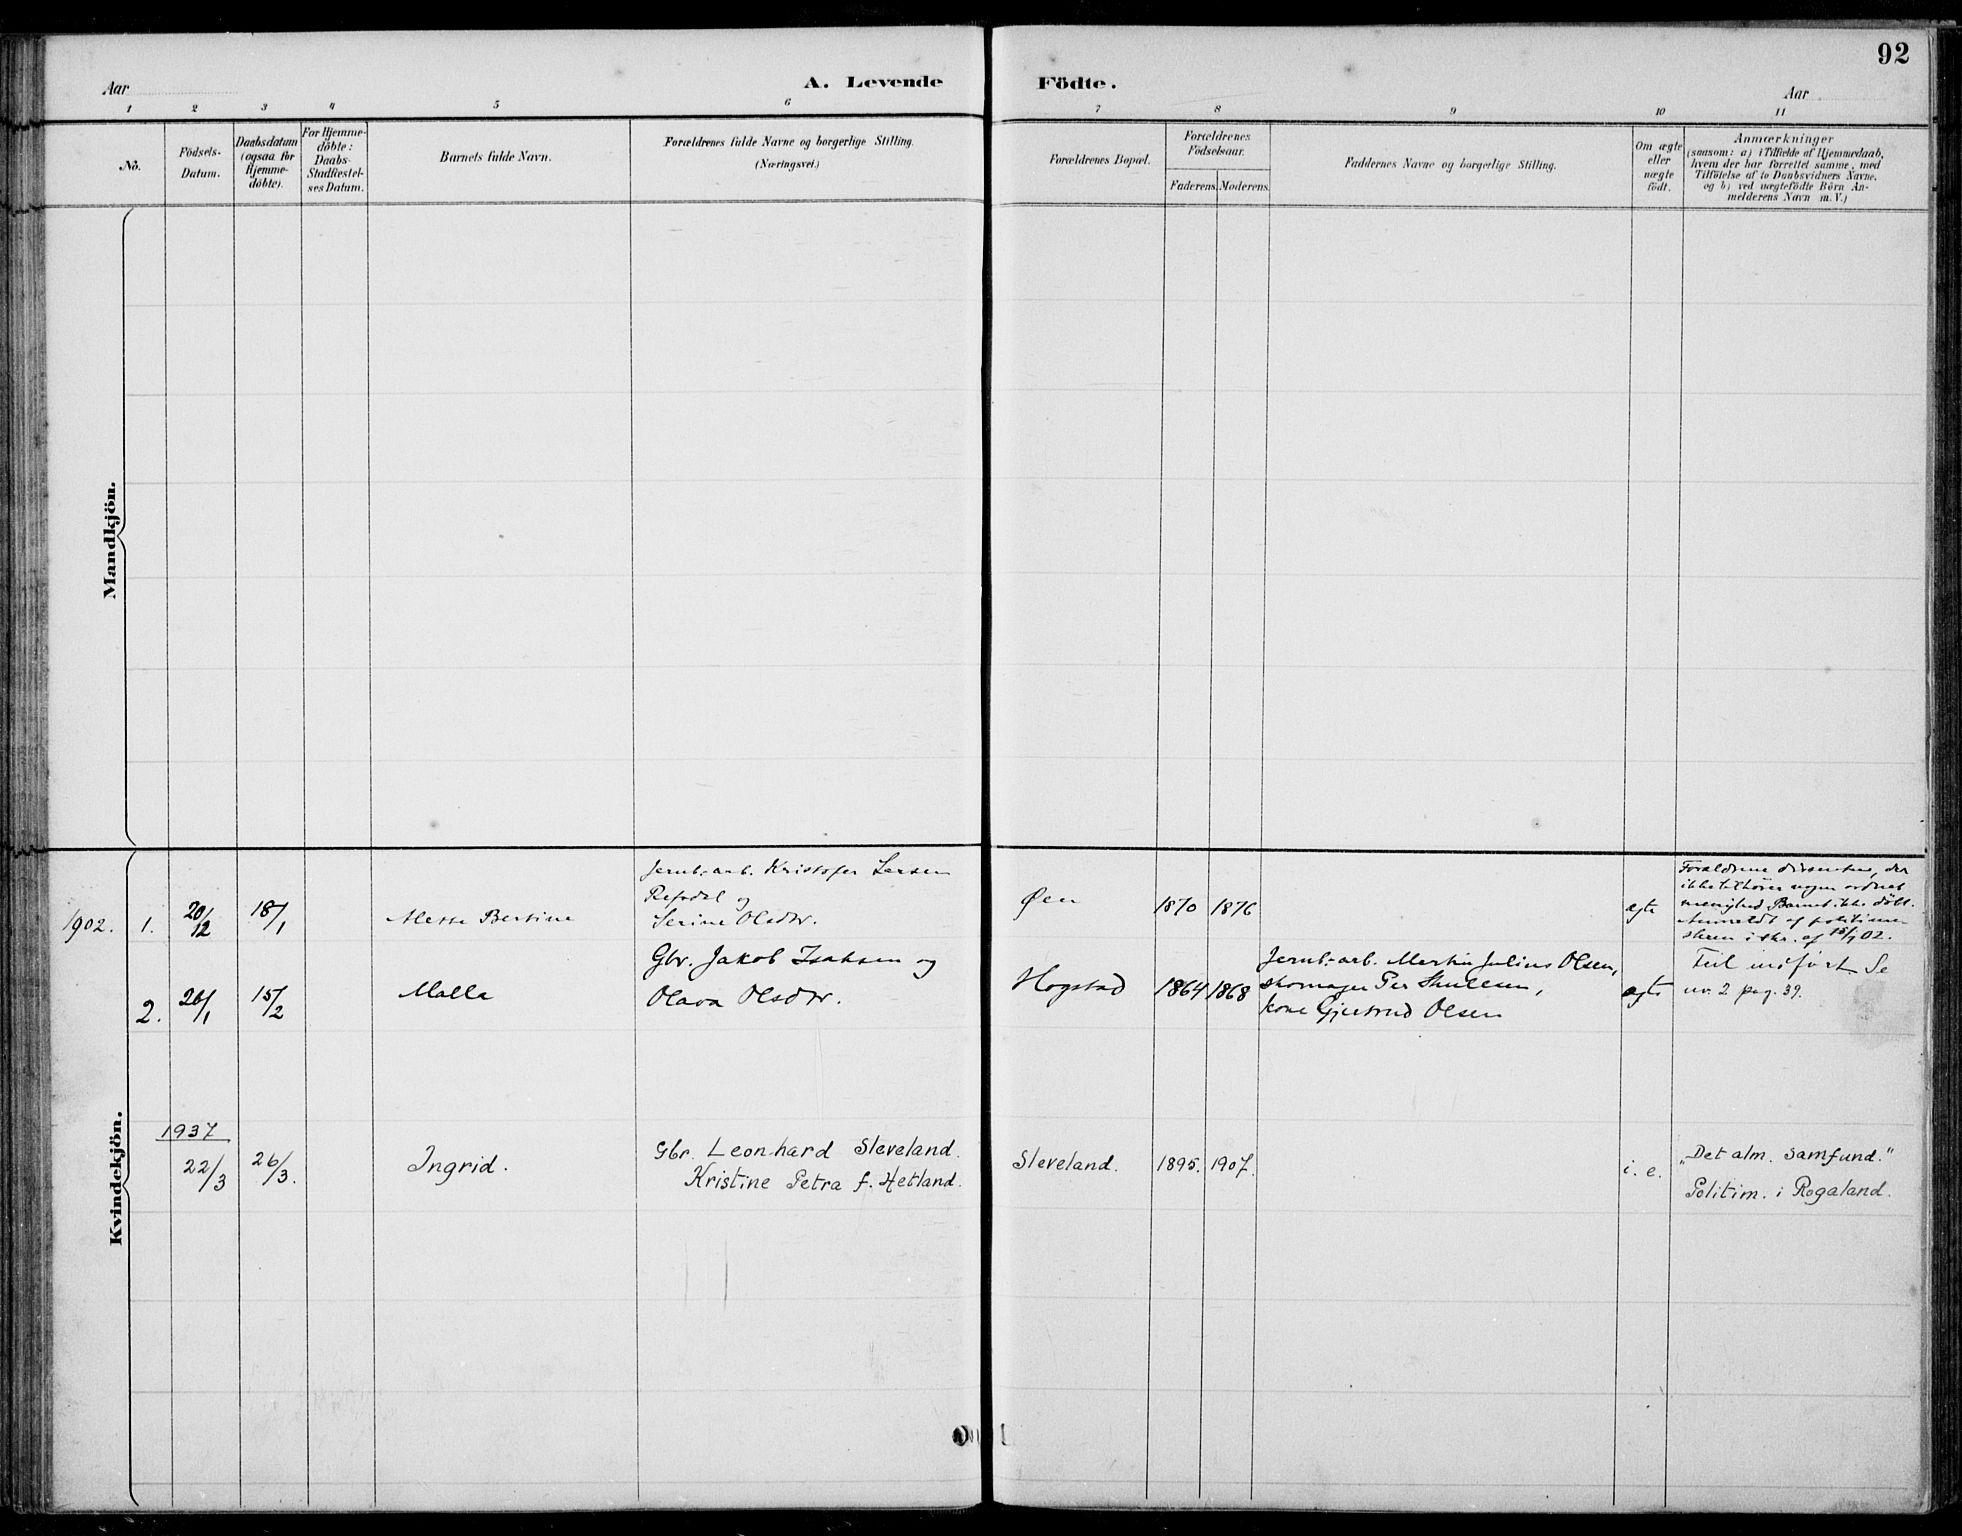 92
Aar
A. Levende
Födte.
Aar
1 2 3 4 5 6 7 8 9 10 11
No.
Födsels-
Datum.
Daabsdatum
(ogsaa for
Hjemme-
döbte).
For Hjemme-
döbte:
Daabs-
Stadfæstel-
ses Datum.
Barnets fulde Navn.
Forældrenes fulde Navne og borgerlige Stilling.
(Næringsvei.)
Forældrenes Bopæl.
Forældrenes
Födselsaar.
Faderens. Moderens.
Faddernes Navne og borgerlige Stilling.
Om ægte
eller
uægte
födt.
Anmærkninger
(saasom: a) i Tilfælde af Hjemmedaab,
hvem der har forrettet samme, med
Tilföielse af to Daabsvidners Navne,
og b) ved uægtefödte Börn An-
melderens Navn m. V.)
Mandkjön.
Kvindekjön.
1902. 1. 20/12 18/1
Bertine
Jernb.-arb. Kristofer Larsen
Refsdal og
Serine Olsdtr.
Øen
1870 1876
ægte
Forældrene dissentere, der
ikke tilhører nogen ordnet
menighed. Barnet ikke döbt.
Anmeldt af politime-
steren i skr. af 02.
2. 26/1 15/2
Malla
Gbr. Jakob Isaksen og
Olava Olsdtr.
Hogstad
1864 1868
Jernb.-arb. Martin Julius Olsen,
skomager Per
kone Gjertrud Olsen
ægte
Feil indført. Se
nr. 2 pag. 39.
1937
22/3 26/3.
Ingrid.
Gbr. Leonhard Sleveland.
Kristine Petra f. Hetland.
Sleveland.
1895. 1907.
i. e.
"Det alm. Samfund."
Politim. i Rogaland.